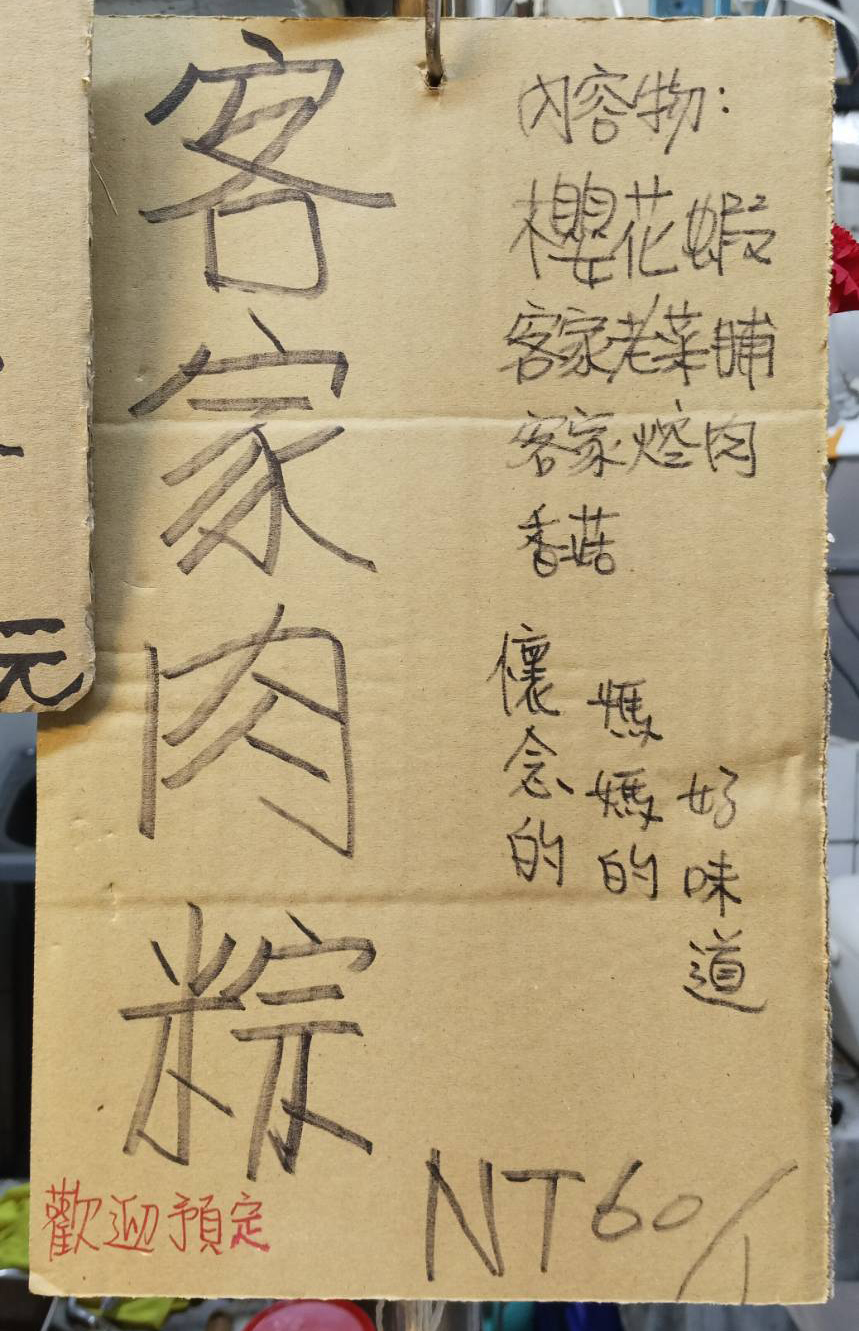 客家肉粽
內容物：
櫻花蝦
客家老菜脯
客家焢肉
香菇
懷念的
媽媽的
好味道
NT60/1
歡迎預定
元